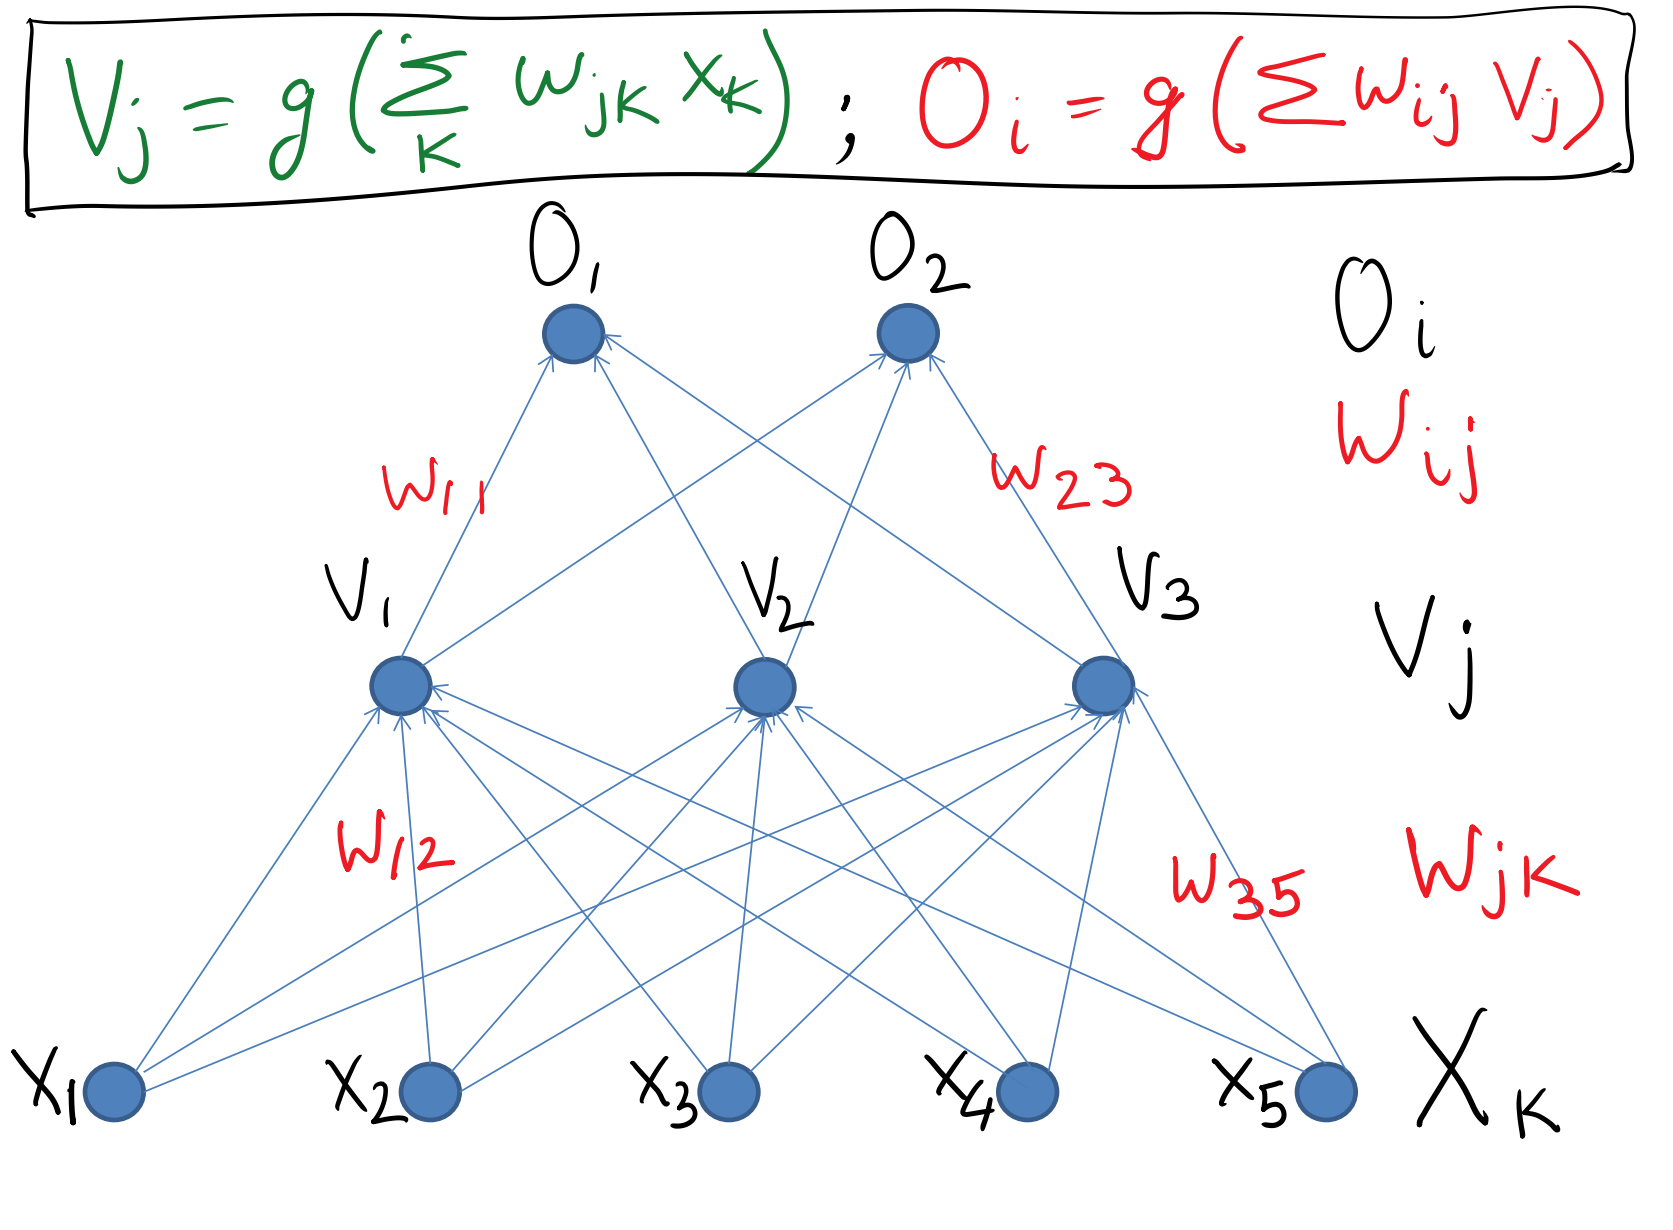 Vj = g(∑K wjK xK) ; Oi = g(∑ wij Vj)
O1 O2 Oi
w11 w23 wij
V1 V2 V3 Vj
w12 w35 wjK
x1 x2 x3 x4 x5 XK